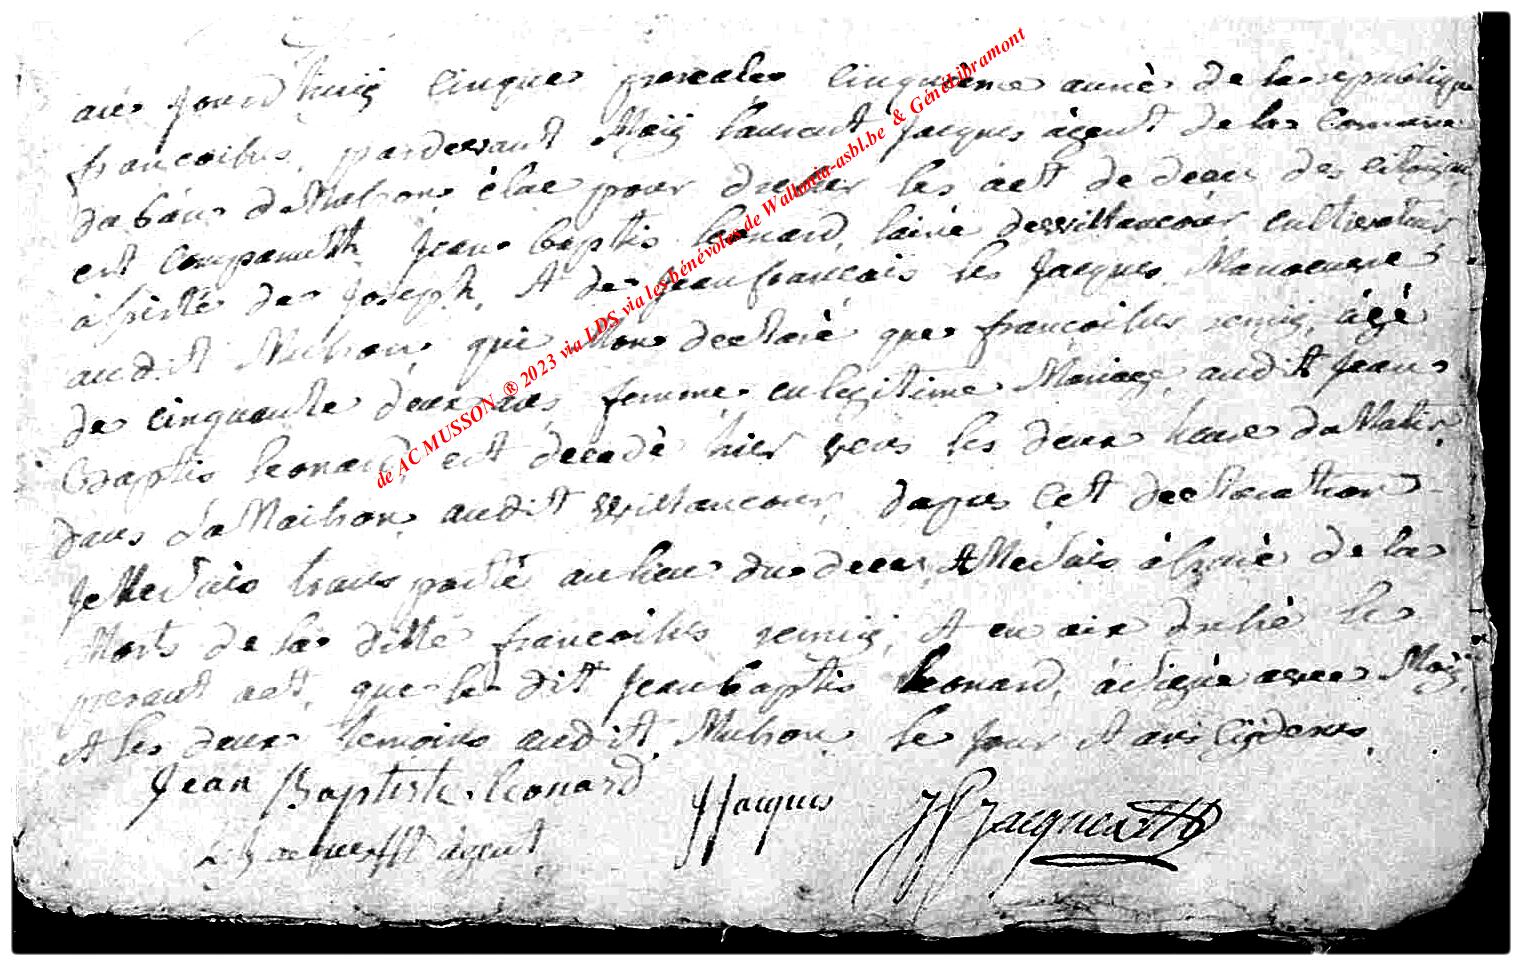 aué jourd'huiÿ cinque pereales cinquieme année de la repuelique
francoibes, pardevant Moiÿ laurent Jacques agent de la Comune
du banc de Mubson élue pour dresser les act de deces des citoÿens
est comparueth Jean baptis leonard, lainé de willancour cultivateur
assisté de Joseph, et de Jean francois les Jacques Manoeuvre
audit Mubson, qui Mon declaré que francoibes remiÿ âgé
de cinquante deux ans femme en legitime Mariage audit Jean
Baptis leonard, est decedé hier vers les deux heure du Matin
dans sa Maibson audit willancour, dapres cet declaration
Je Me suis trans porté au lieu du deces, et Me suis assuré de la
Morts de la ditte francoibes remiÿ, et en aix dressé le
presant act, que le dit Jean baptis leonard, a signé avec Moiÿ,
et les deux temoins audit Mubson le jour et ans cÿ desus,
Jean Baptiste leonard
J Jacques
J f Jacques
L Jacques agent
de AC MUSSON ® 2023 via LDS via les bénévoles de Wallonia-asbl.be & Généalibramont